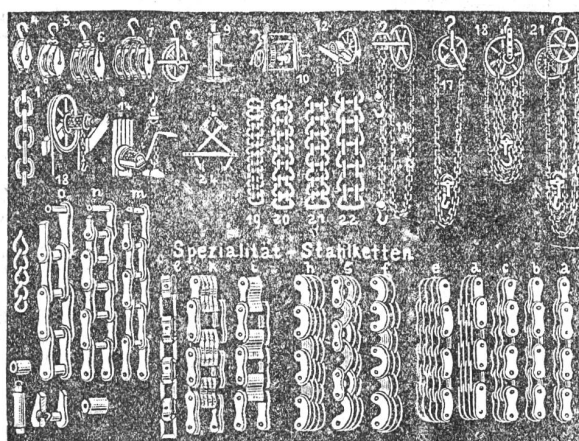 4 5 6 7 8 9 10 12 17 18 21
1 18
19 20 21 22
o n m
Spezialität - Stahlketten
l k i h g f e d c b a